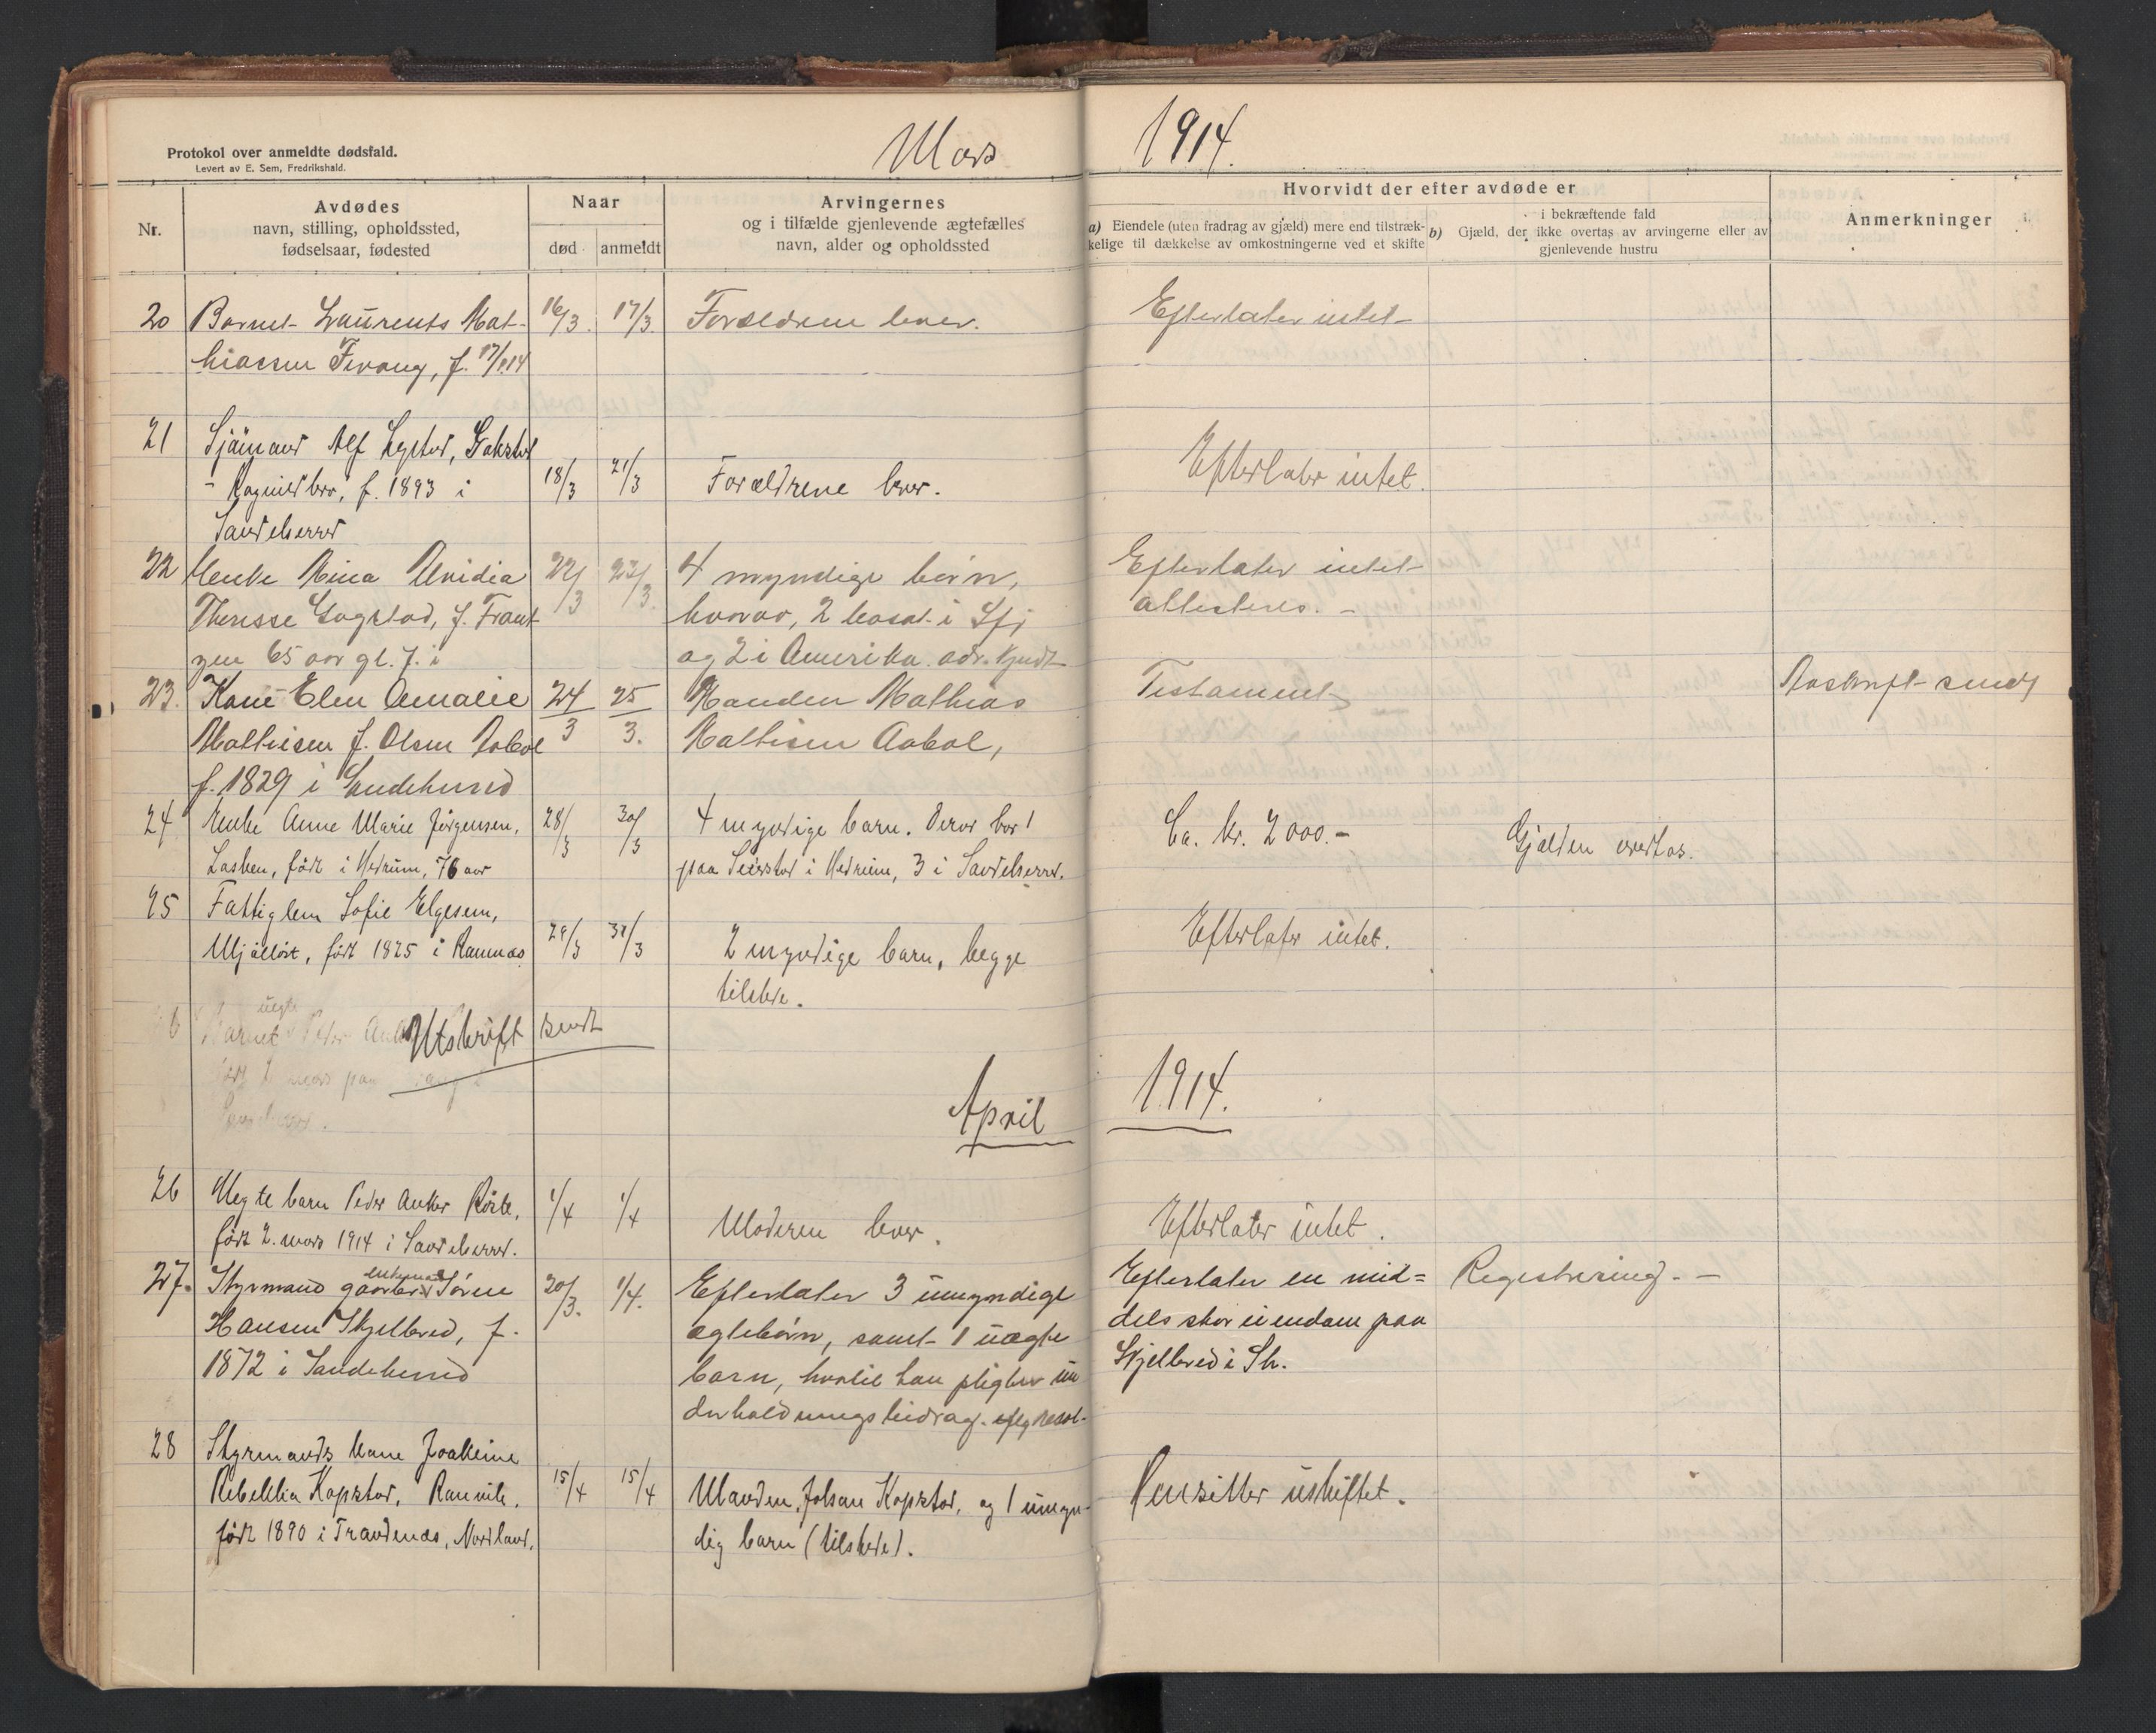 Mars 1914.
Protokol over anmeldte dødsfald.
Levert av E. Sem, Fredrikshald.
Nr.
Avdødes
navn, stilling, opholdssted,
fødselsaar, fødested
Naar
død
anmeldt
Arvingernes
og i tilfælde gjenlevende ægtefælles
navn, alder og opholdssted
Hvorvidt der efter avdøde er
a) Eiendele (uten fradrag av gjæld) mere end tilstræk-
kelige til dækkelse av omkostningerne ved et skifte
i bekræftende fald
b) Gjæld, der ikke overtas av arvingerne eller av
gjenlevende hustru
Anmerkninger
20 Barnet Laurents Mat- 16/3. 17/3 Forældrene lever. Efterlater intet
hiassen Fevang, f. 17/1.14
21 Sjømand Alf Lystad, Gokstad
Ragnhildsro, f. 1893 i 18/3 21/3 Forældrene lever. Efterlater intet.
Sandeherred
22 Enke Nina Unidia 22/3 23/3. 4 myndige børn, Efterlater intet
Theresse Gogstad, f. Frant hvorav, 2 bosat i Sfj attesteres. -
zen 65 aar gl. f. i og 2 i Amerika. adr. kjendt
23. Kone Elen Amalie 24/3 25/3. Manden Mathias Testament Avskrift sendt
Mathisen f. Olsen Aabol Mathisen Aabol,
f. 1829 i Sandeherred
24 Enke Anne Marie Jørgensen, 28/3 30/3 4 myndige barn. Derav bor 1 Ca. kr. 2000.- Gjælden overtas.
Lasken, født i Hedrum, 76 aar paa Seierstad i Hedrum, 3 i Sandeherred.
25 Fattiglem Sofie Elgesem,
Mjølløst, født 1825 i Ramnæs 29/3 31/3 2 myndige barn, begge Efterlater intet.
tilstede.
uegte
Barnet Peder Utskrift sendt
født 2 mars paa
Sandeherred.
April 1914.
26 Uegte barn Peder Anker Røste, 1/4 1/4 Moderen lever. Efterlater intet.
født 2. mars 1914 i Sandeherred.
27. Styrmand gaardbr. Sørene 20/3. 1/4. Efterlater 3 umyndige Efterlater en mid= Registrering. -
enkemand
Hansen Skjelbred, f. ægtebørn, samt 1 uægte dels stor eiendom paa
1872 i Sandeherred barn, hvortil han pligter un Skjelbred i Sh.
derholdningsbidrag. iflg resol-
28 Styrmands kone Joakime
Rebekka Kopstad, Ranvik, 15/4 15/4 Manden, Johan Kopstad, og 1 umyn- Hensitter uskiftet.
født 1890 i Trandenæs, Nordland, dig barn (tilstede).